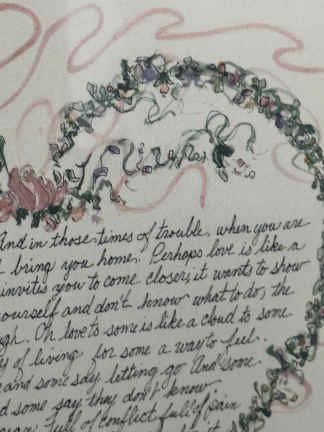 And in those times of trouble, when you are
bring you home. Perhaps love is like a
invites you to come closer, it wants to show
yourself and don't know what to do, the
gh. Oh love to some is like a cloud to some
of living, for some a way to feel.
and some say letting go And some
d some say they don't know.
full of conflict full of pain